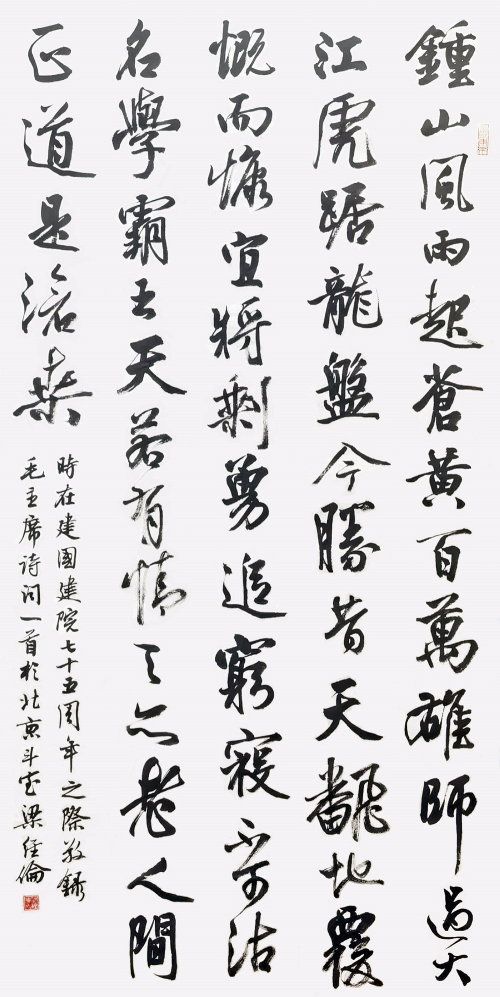 鍾山風雨起蒼黃百萬雄師過大
江虎踞龍盤今勝昔天飜地覆
慨而慷宜將剩勇追窮寇不可沽
名學霸王天若有情天亦老人間
正道是滄桑
時在建國建院七十五周年之際敬録
毛主席诗词一首於北京斗室梁倫